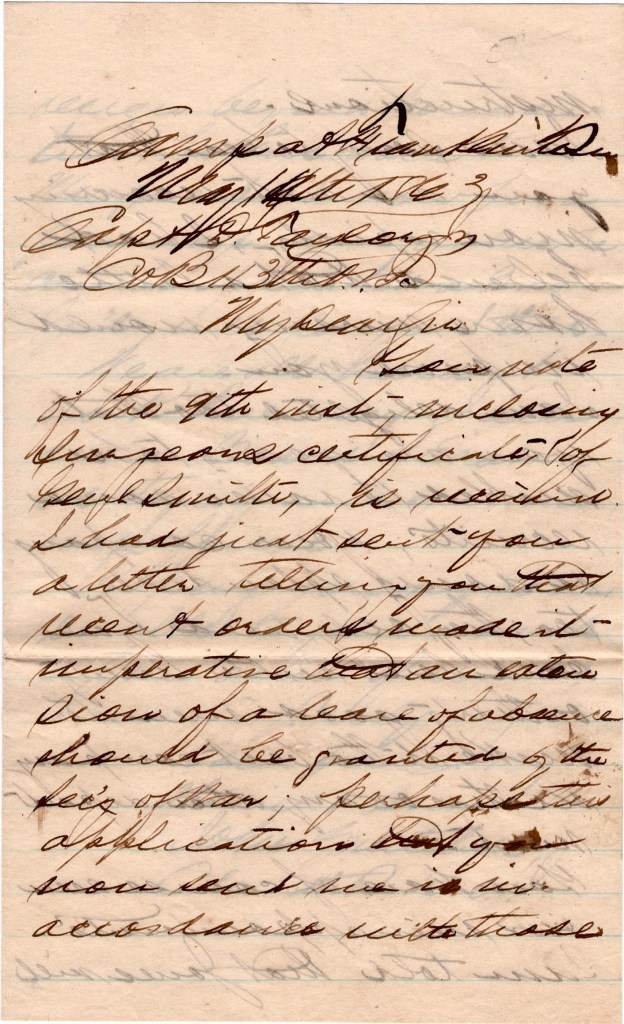 Camp at Franklin Ten
May 10th 1863
Capt H.
Co B 13th
My Dear Sir
Your note
of the 9th inst, inclosing
Surgeons certificate, of
Smith, is received.
I had just sent you
a letter telling you that
recent orders made it
imperative that an exten
sion of a leave of absence
should be granted by the
Sec'y of War; perhaps this
application that you
now sent me is in
accordance with those